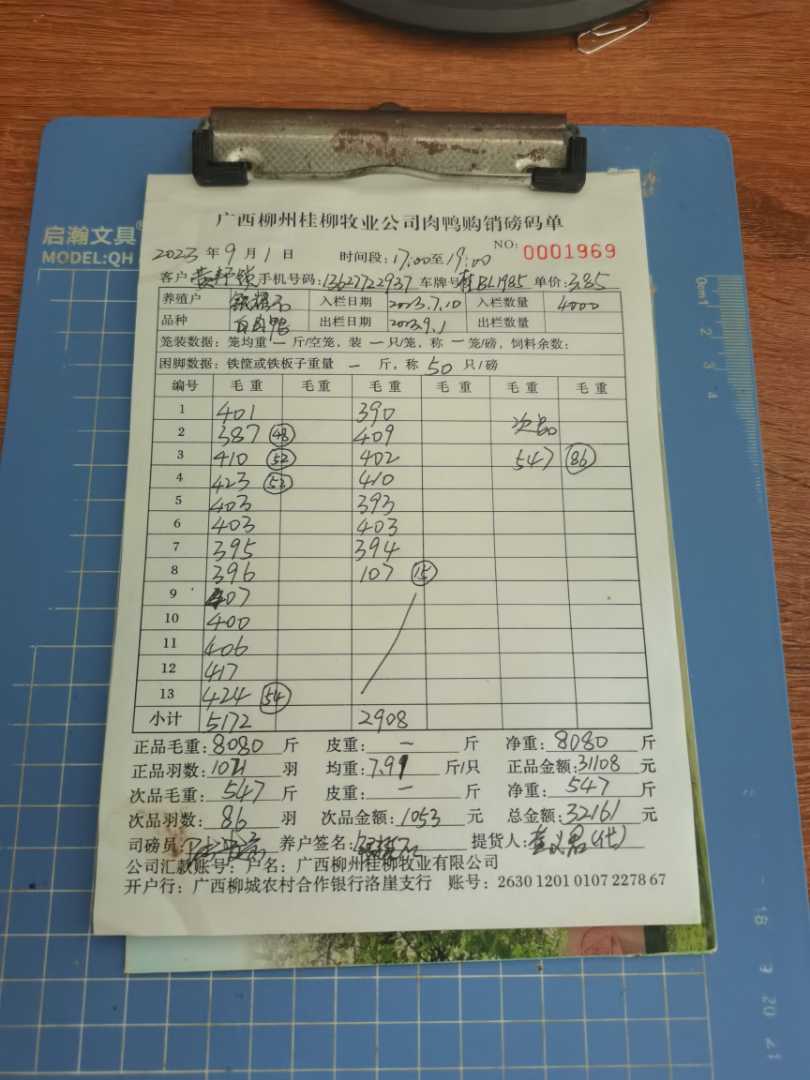 启瀚文具
MODEL:QH
广西柳州桂柳牧业公司肉鸭购销磅码单
2023 年 9 月 1 日 时间段: 17:00至19:00 NO: 0001969
客户 手机号码: 13627722937 车牌号 BL1985 单价: 3.85
养殖户 入栏日期 2023.7.10 入栏数量 4000
品种 白肉鸭 出栏日期 2023.9.1 出栏数量
笼装数据: 笼均重 一 斤/空笼, 装 一 只/笼, 称 一 笼/磅, 饲料余数:
困脚数据: 铁筐或铁板子重量 一 斤, 称 50 只/磅
编号 毛重 毛重 毛重 毛重 毛重 毛重
1 401 390
2 387 48 409 次品
3 410 52 402 547 86
4 423 53 410
5 403 393
6 403 403
7 395 394
8 396 107 15
9 407
10 400
11 406
12 417
13 424 54
小计 5172 2908
正品毛重: 8080 斤 皮重: 一 斤 净重: 8080 斤
正品羽数: 1021 羽 均重: 7.91 斤/只 正品金额: 31108 元
次品毛重: 547 斤 皮重: 一 斤 净重: 547 斤
次品羽数: 86 羽 次品金额: 1053 元 总金额: 32161 元
司磅员: 养户签名: 提货人: (代)
公司汇款账号: 户名: 广西柳州桂柳牧业有限公司
开户行: 广西柳城农村合作银行洛崖支行 账号: 2630 1201 0107 2278 67